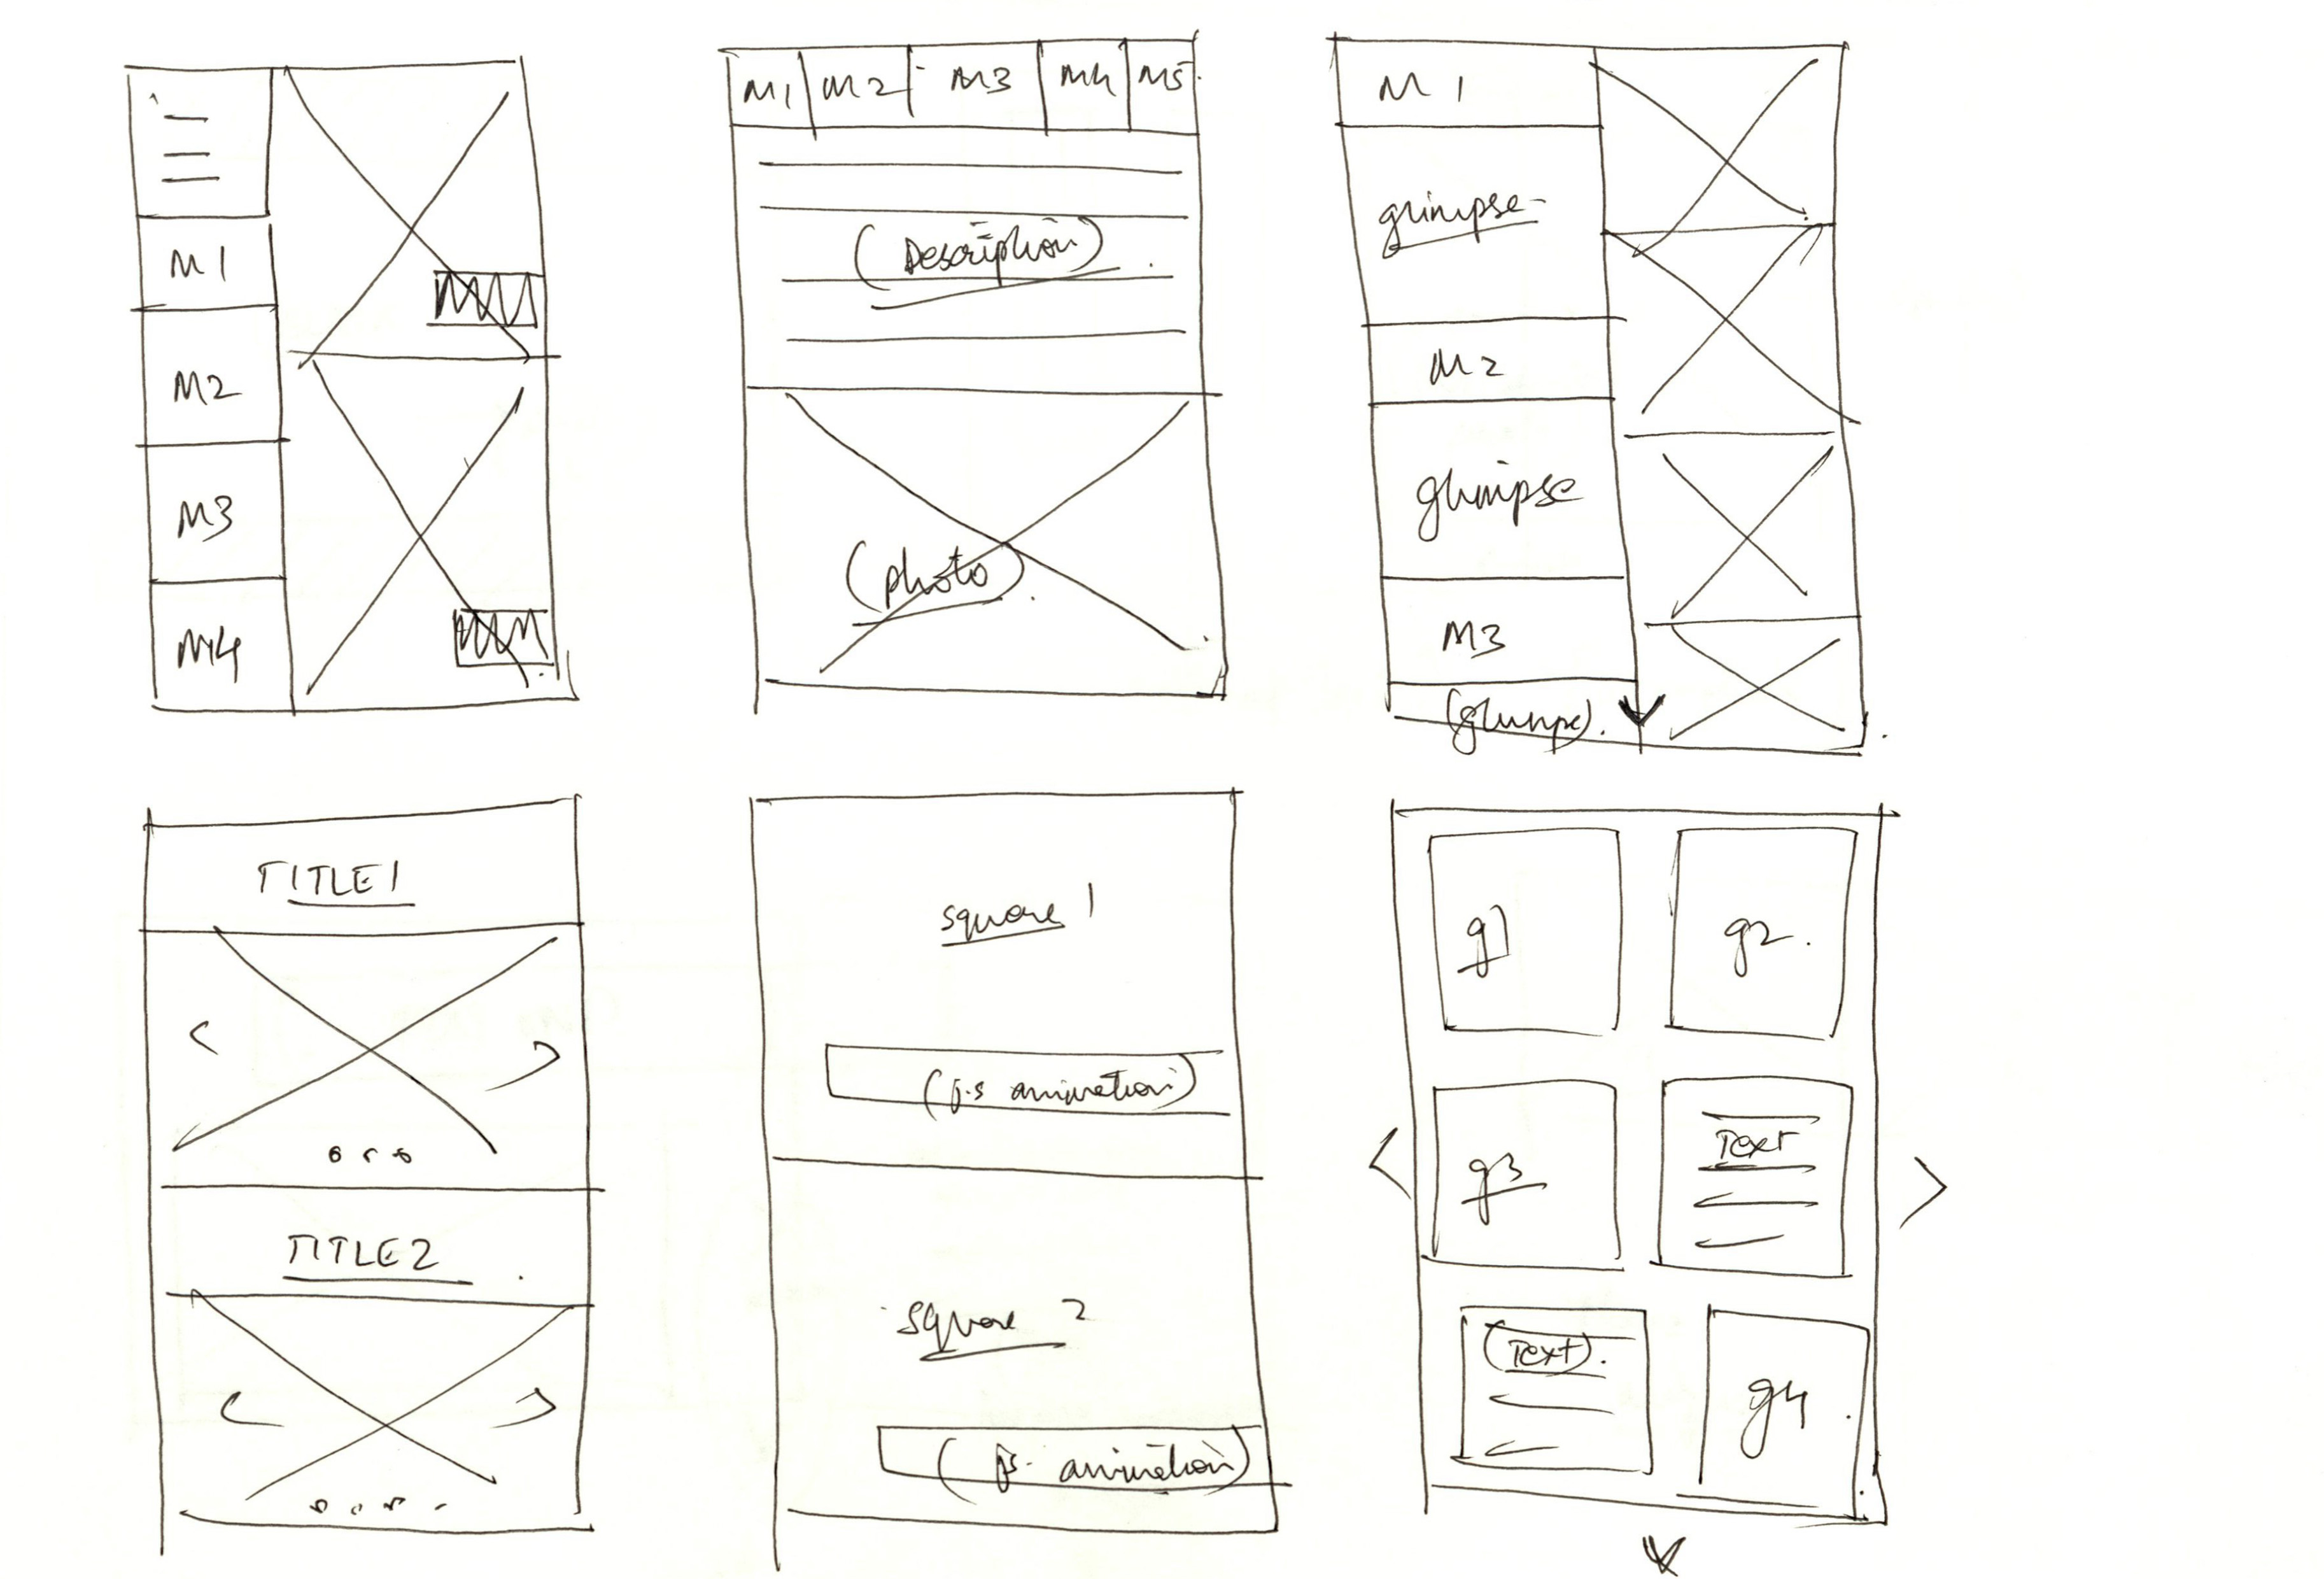 M1
M2
M3
M4
M1 M2 M3 M4 M5
(Description)
(photo)
M 1
glimpse
M2
glimpse
M3
(glimpse).
TITLE1
TITLE2
square 1
(js animation)
square 2
(js animation)
g1
g2.
g3
Text
(Text).
g4